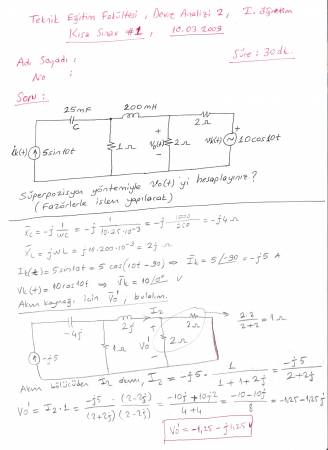 Teknik Eğitim Fakültesi, Devre Analizi 2, I. öğretim
Kısa Sınav #1, 10.03.2009
Adı Soyadı:
No :
Süre: 30dk.
Soru:
25mF 200mH
C 2Ω
ik(t) 5sin10t 1Ω + Vo(t) - 2Ω Vk(t) 10cos10t
Süperpozisyon yöntemiyle Vo(t)'yi hesaplayınız?
(Fazörlerle işlem yapılacak)
Xc = -j 1/wC = -j 1/10.25.10⁻³ = -j 1000/250 = -j4 Ω
XL = jwL = j10.200.10⁻³ = 2j Ω
Ik(t) = 5sin10t = 5cos(10t-90) ⇒ Ik = 5∠-90 = -j5 A
Vk(t) = 10cos10t ⇒ Vk = 10∠0° V
Akım kaynağı için Vo' bulalım.
I2
-4j 2j 2Ω 2.2/2+2 = 1Ω
-j5 1Ω + Vo' - 2Ω
Akım bölücüden I2 akımı, I2 = -j5 . 1/1+1+2j = -j5/2+2j
Vo' = I2.1 = -j5 . (2-2j)/(2+2j)(2-2j) = -10j+10j²/4+4 = -10-10j/8 = -1,25-1,25j
Vo' = -1,25-j1,25 V